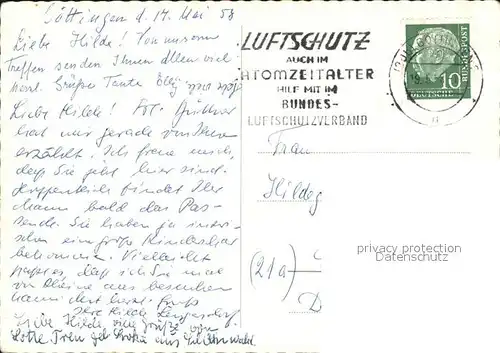 Göttingen d. 14. Mai 58
Liebe Hilde! Von unserem
Treffen senden Ihnen allen viel
herzl. Grüße Tante Elly
Liebe Hilde! Frl. Güttner
hat mir gerade von Ihnen
erzählt. Ich freue mich,
daß Sie jetzt hier sind.
Hoffentlich findet Ihr
Mann bald das Pas-
sende. Sie haben ja inzwi-
schen eine große Kinderschar
bekommen. Vielleicht
paßt es, daß ich Sie mal
von Rheine aus besuchen
kann. Sehr herzl. Gruß
Ihre Hilde
Liebe Hilde, viele Grüße von
Lotte
LUFTSCHUTZ
AUCH IM
ATOMZEITALTER
HILF MIT IM
BUNDES-
LUFTSCHUTZVERBAND
10
DEUTSCHE
BUNDESPOST
Frau
Hildeg
privacy protection
Datenschutz
(21a)
D